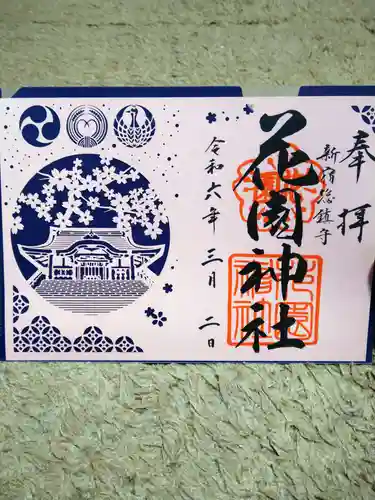 奉拝
新宿総鎮守
花園神社
令和六年三月二日